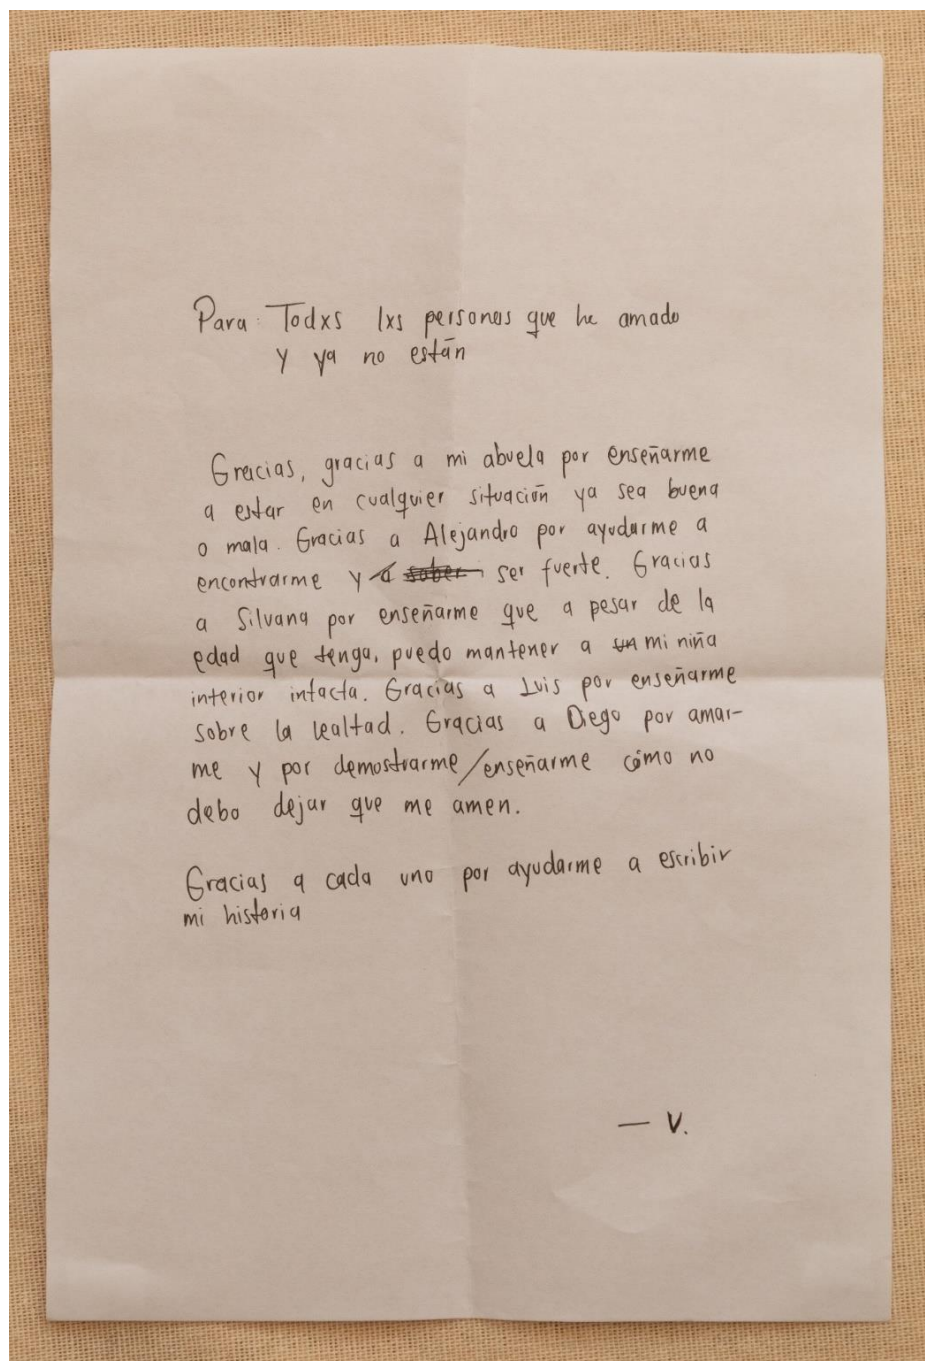 Para: Todxs lxs personas que he amado
y ya no están
Gracias, gracias a mi abuela por enseñarme
a estar en cualquier situación ya sea buena
o mala. Gracias a Alejandro por ayudarme a
encontrarme y a saber ser fuerte. Gracias
a Silvana por enseñarme que a pesar de la
edad que tenga, puedo mantener a un mi niña
interior intacta. Gracias a Luis por enseñarme
sobre la lealtad. Gracias a Diego por amar-
me y por demostrarme/enseñarme cómo no
debo dejar que me amen.
Gracias a cada uno por ayudarme a escribir
mi historia
— V.